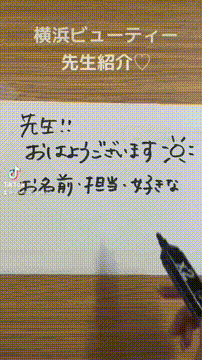 横浜ビューティー
先生紹介♡
先生!!
おはようございます
お名前・担当・好きな